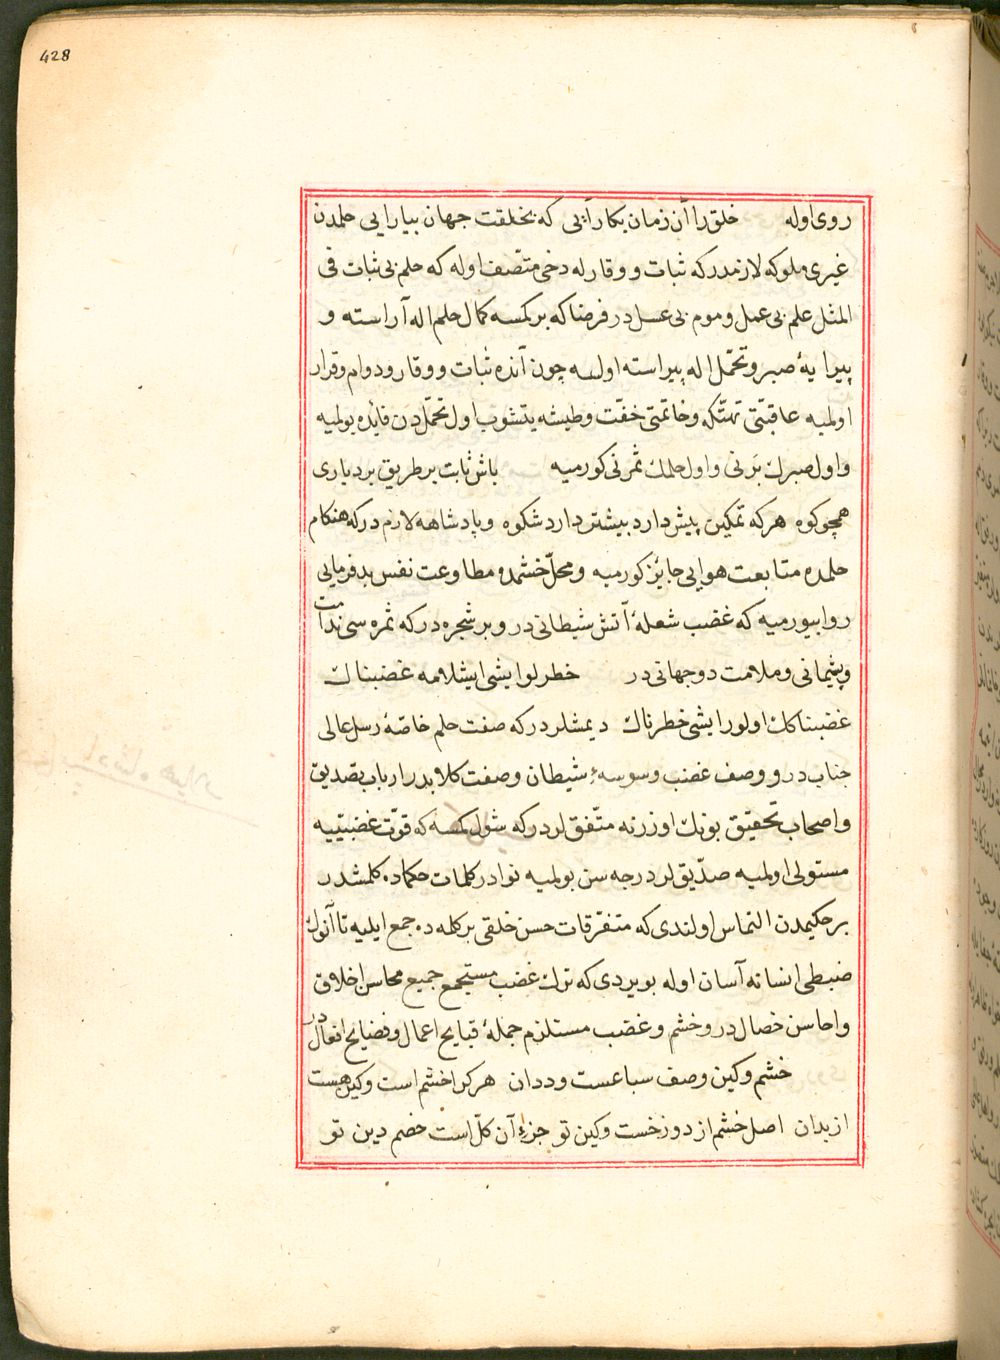 428
روی اوله خلق را آن زمان بکار آئی که بخلقت جهان بیارایی حلمدن
غیری ملوکه لازمدر که ثبات و وقارله دخی متصف اوله که حلم بی ثبات فی
المثل علم بی عمل و موم بی عسل در فرضا که بر کمسه کمال حلم اله آراسته و
پیرایۀ صبر و تحمّل اله پیراسته اولسه چون آنده ثبات و وقار و دوام و قرار
اولمیه عاقبتی تهتّکه و خاتمتی خفّت و طیشه یتشوب اول تحمّلدن فایده بولمیه
و اول صبرك بَرنی و اول حلمك ثمرنی کورمیه باش ثابت بر طریق بردباری
همچو کوه هر که تمکین پیش دارد بیشتر دارد شکوه و پادشاهه لازم در که هنکام
حلمده متابعت هوایی جایٔز کورمیه و محلّ خشمده مطاوعت نفس بد فرمایی
روا بیورمیه که غضب شعلۀ آتش شیطانی در و بر شجره در که ثمره سی ندامت
و پشیمانی و ملامت دو جهانی در خطرلو ایشی ایشلامه غضبناك
غضبناكك اولور ایشی خطرناك دیمشلردر که صفت حلم خاصّۀ رسل عالی
جناب در و وصف غضب وسوسهء شیطان و صفت کلابدر ارباب تصدیق
و اصحاب تحقیق بونك اوزرنه متّفق لردر که شول کمسه که قوّت غضبیّیه
مستولی اولمیه صدّیق لر درجه سن بولمیه نوادر کلمات حکماده کلمشدر
بر حکیمدن التماس اولندی که متفرّقات حسن خلقی بر کلمه ده جمع ایلیه تا آنوك
ضبطی انسانه آسان اوله بویردی که ترك غضب مستجمع جمیع محاسن اخلاق
و احاسن خصال در و خشم و غضب مستلزم جملۀ قبایح اعمال و فضایح افعال در
خشم و کین وصف سباعست و ددان هر کرا خشم است و کین هست
از بدان اصل خشم از دوزخست و کین تو جزءِ آن کلّ است خصم دین تو